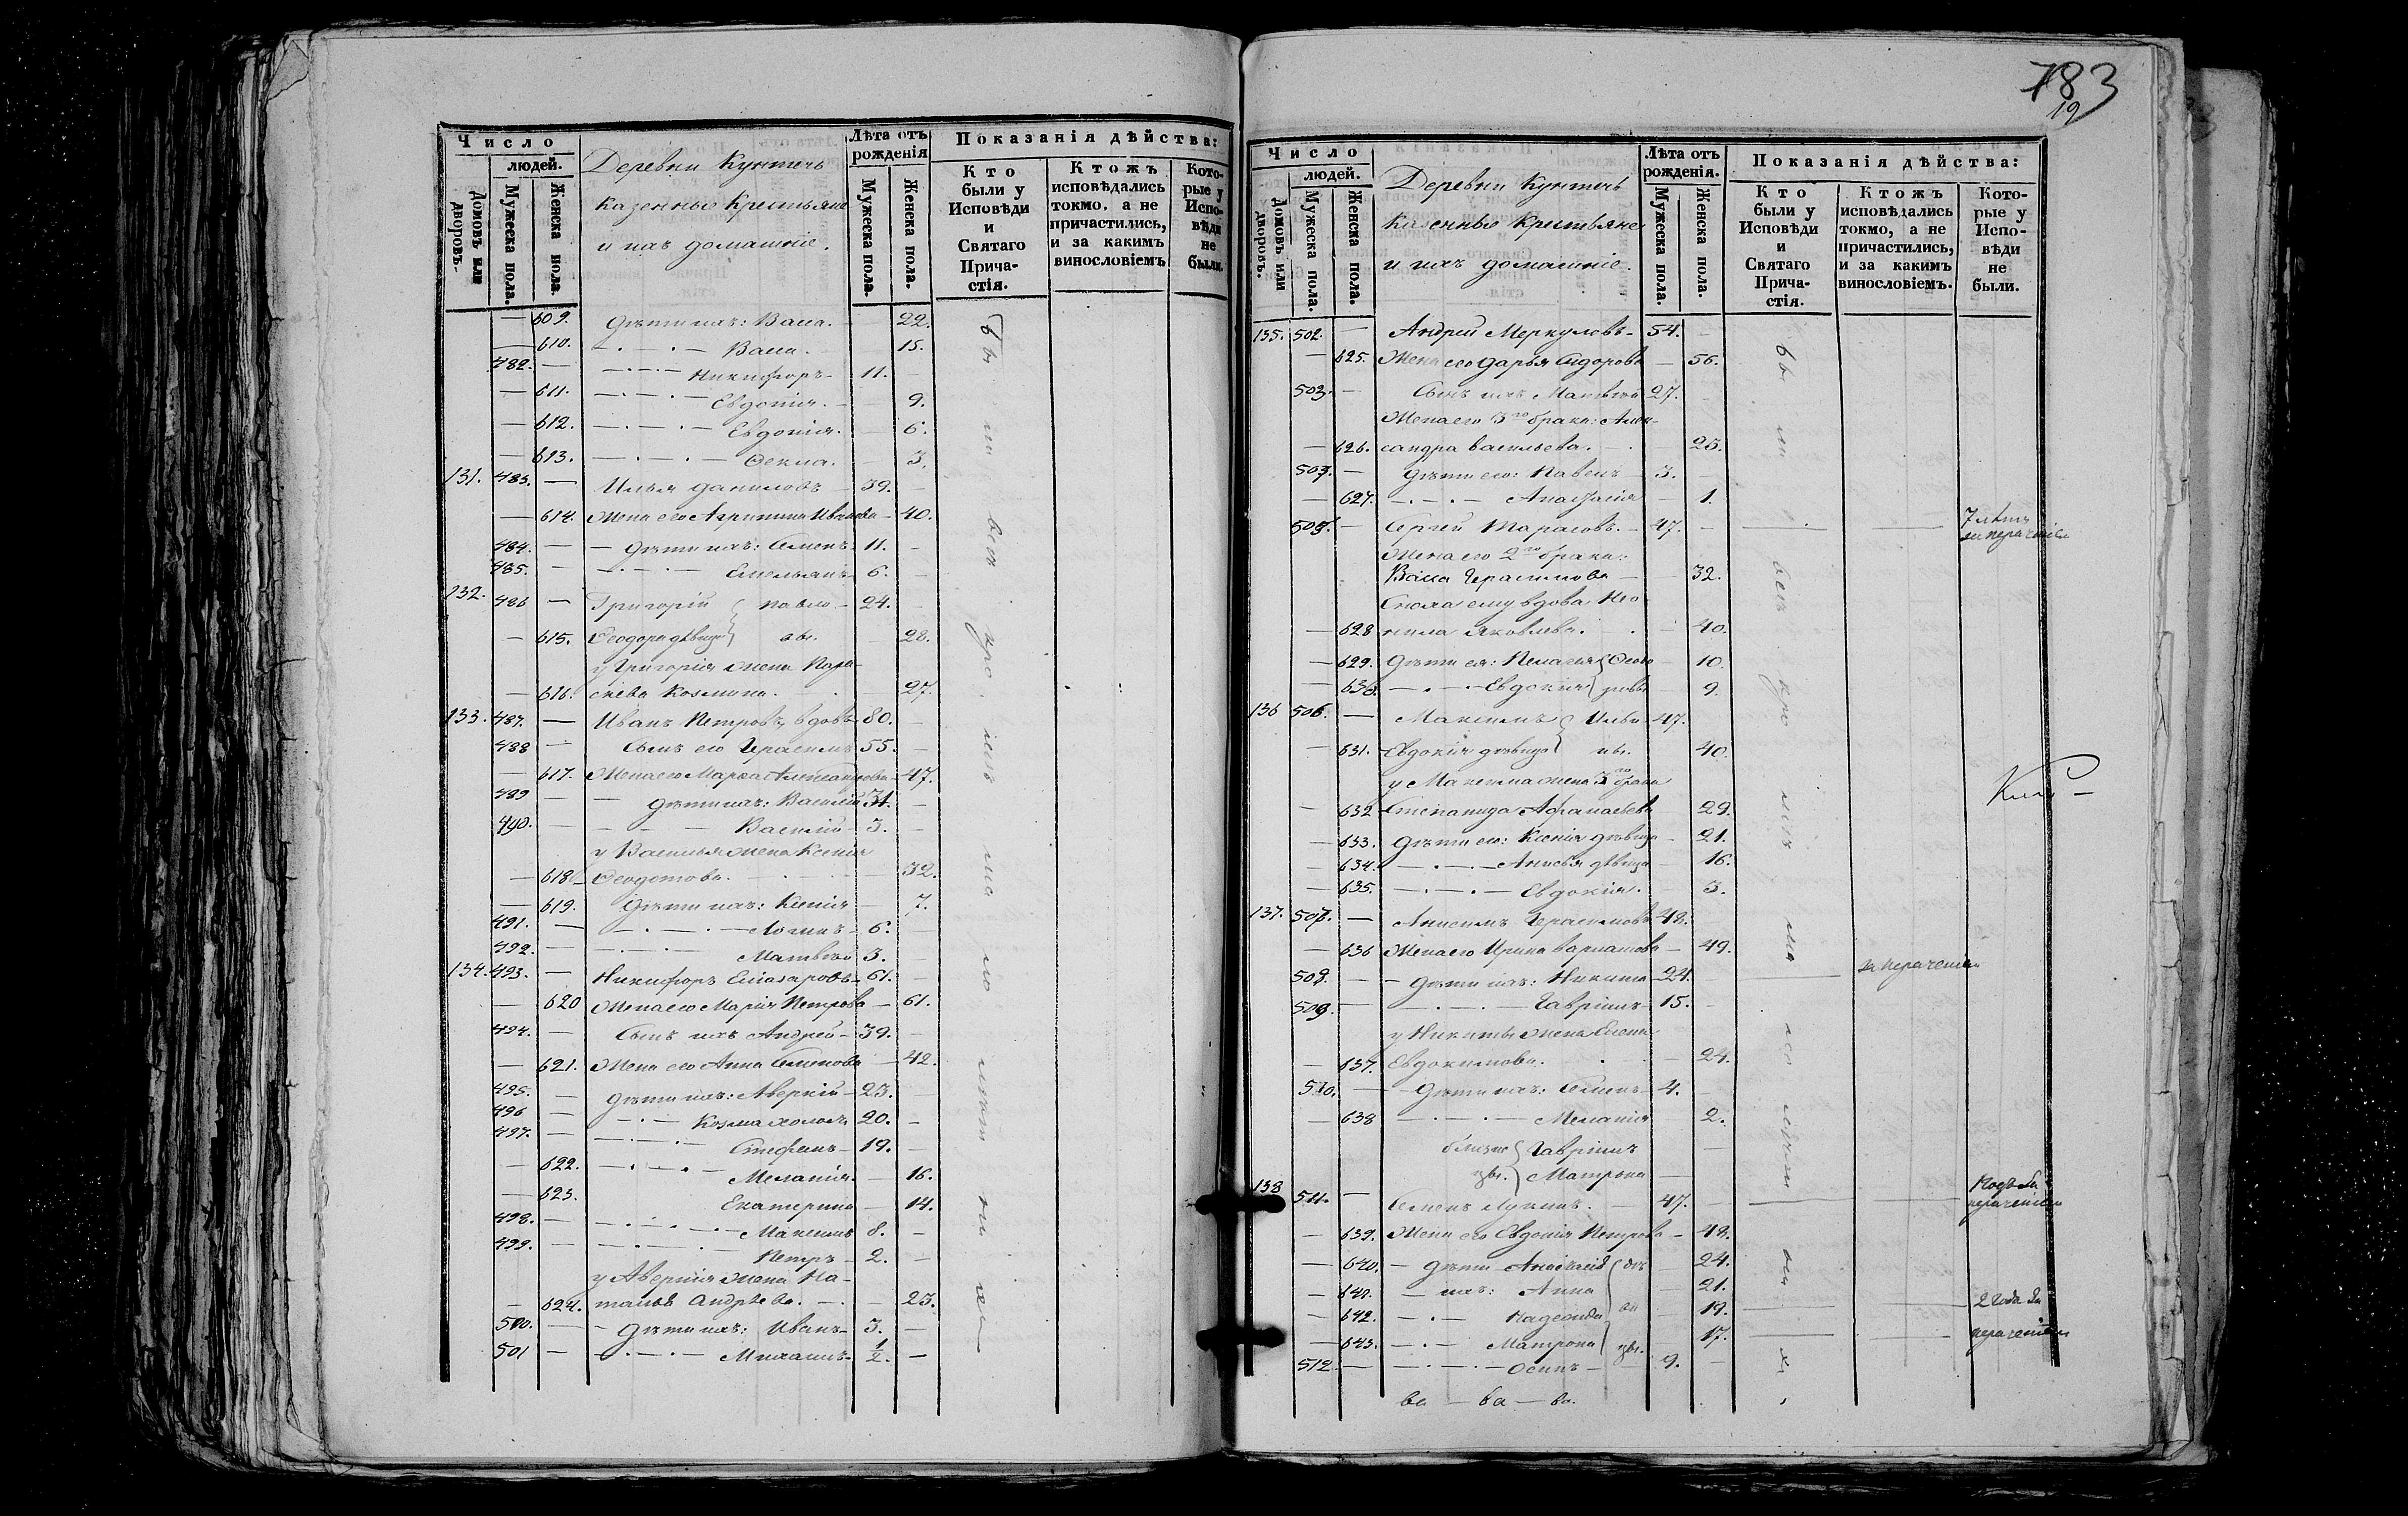 Число
людей.
Домовъ или дворовъ.
Мужеска пола.
Женска пола.
Деревни Кунтечь
казенные Крестьяне
и ихъ домашніе.
Лѣта отъ рожденія
Мужеска пола.
Женска пола.
Показанія дѣйства:
Кто были у Исповѣди и Святаго Прича-стія.
Ктожъ исповѣдались токмо, а не причастились, и за какимъ винословіемъ
Кото-рые у Испо-вѣди не были.
— 609. Дѣти ихъ: Васса. 22.
— 610. Васса. 15.
482. — Никифоръ 11.
— 611. Евдокія. 9.
— 612. Евдокія. 6.
— 613. Ѳекла. 3.
131. 483. — Илья Даниловъ 39.
— 614. Жена его Агрипина Иванова 40.
484. — Дѣти ихъ: Семенъ 11.
485. — Емельянъ 6.
132. 486 — Григорій Павло 24.
— 615. Ѳеодора дѣвица вы. 28.
у Григорія жена Пара-
— 616. скева Козмина. 27.
133. 487. — Иванъ Петровъ, вдовъ 80.
488 — Сынъ его Герасимъ 55.
— 617. Жена его Марѳа 47.
489 — Дѣти ихъ: Василій 31.
490. — Василій 3.
у Василья жена Ксенія
— 618 Ѳеодотова. 32.
— 619. Дѣти ихъ: Ксенія 7.
491. — Логинъ 6.
492. — Матвѣй 3.
134. 493. — Никифоръ Елазаровъ 61.
— 620 Жена его Марія Петрова 61.
494. — Сынъ ихъ Андрей 39.
— 621. Жена его Анна Семенова 42.
495. — Дѣти ихъ: Аверкій 23.
496 — Козма холостъ 20.
497. — Стефанъ 19.
— 622. Меланія. 16.
— 623. Екатерина 14.
498. — Максимъ 8.
499. — Петръ 2.
у Аверкія жена На-
— 624. талья Андрѣева. 23.
500. — Дѣти ихъ: Иванъ 3.
501 — Михаилъ 1/2.
783
19
Число
людей.
Домовъ или дворовъ.
Мужеска пола.
Женска пола.
Деревни Кунтечь
казенные Крестьяне
и ихъ домашніе.
Лѣта отъ рожденія.
Мужеска пола.
Женска пола.
Показанія дѣйства:
Кто были у Исповѣди и Святаго Прича-стія.
Ктожъ исповѣдались токмо, а не причастились, и за какимъ винословіемъ.
Кото-рые у Испо-вѣди не были.
135. 502. — Андрей Меркуловъ 54.
— 625. Жена его Дарья Сидорова 56.
503. — Сынъ ихъ Матвѣй 27.
Жена его 3го брака: Алек-
— 626. сандра Васильева. 25.
504. — Дѣти его: Павелъ 3.
— 627. Анастасія 1.
505. — Сергей Тарасовъ. 47. 7 лѣтъ
за нерачен
Жена его 2го брака:
Васса Герасимова 32.
Сноха ему вдова Нео-
— 628 нила Яковлева. 40.
— 629. Дѣти ея: Пелагея Ѳедо 10.
— 630. Евдокія ровы 9.
136 506. — Максимъ Ильи 47.
— 631. Евдокія дѣвица ны. 40.
у Максима жена 3го брака
— 632 Степанида Афанасьева 29.
— 633. Дѣти его: Ксенія дѣвица 21.
— 634. Анисья дѣвица 16.
— 635. Евдокія. 3.
137. 507. — Анисимъ Герасимовъ 48.
— 636 Жена его Ирина 49.
508. — Дѣти ихъ: Никита 24. за нераченіемъ
509. — Гавріилъ 15.
у Никиты жена Елена
— 637. Евдокимова. 24.
510. — Дѣти ихъ: Семенъ 4.
— 638 Меланія 2.
близне Гавріилъ
цы. Матрона
138 511. — Семенъ Лукинъ. 47. 1 годъ за
нераченіемъ
— 639. Жена его Евдокія Петрова 48.
— 640. Дѣти Анастасія дѣ 24.
— 641. ихъ: Анна 21.
— 642. Надежда ви 19. 2 года за
— 643. Матрона цы. 17. нераченіемъ
512. — Осипъ 9.
ва — ва — ва.